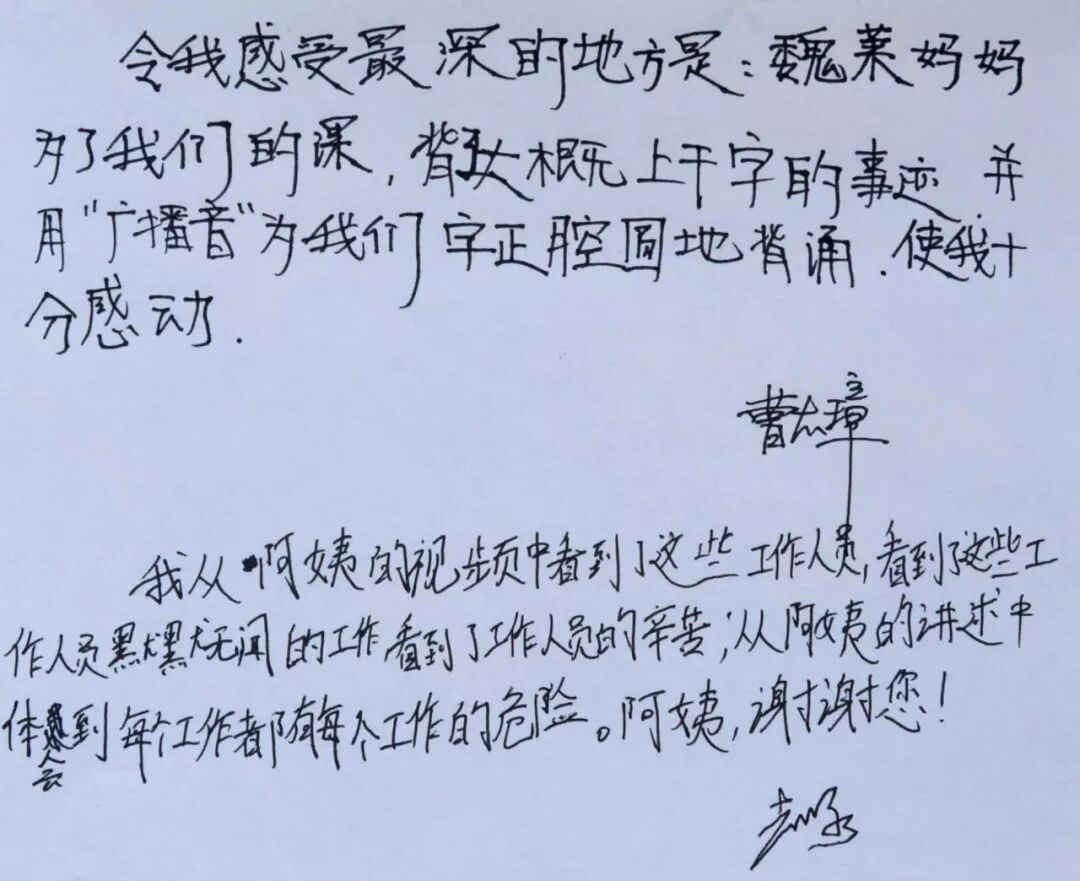 令我感受最深的地方是：魏莱妈妈
为了我们的课，背了大概上千字的事迹.并
用“广播音”为我们字正腔圆地背诵.使我十
分感动.
曹志璋
我从阿姨的视频中看到了这些工作人员，看到了这些工
作人员默默无闻的工作看到了工作人员的辛苦；从阿姨的讲述中
体会到每个工作者都有每个工作的危险。阿姨，谢谢您！